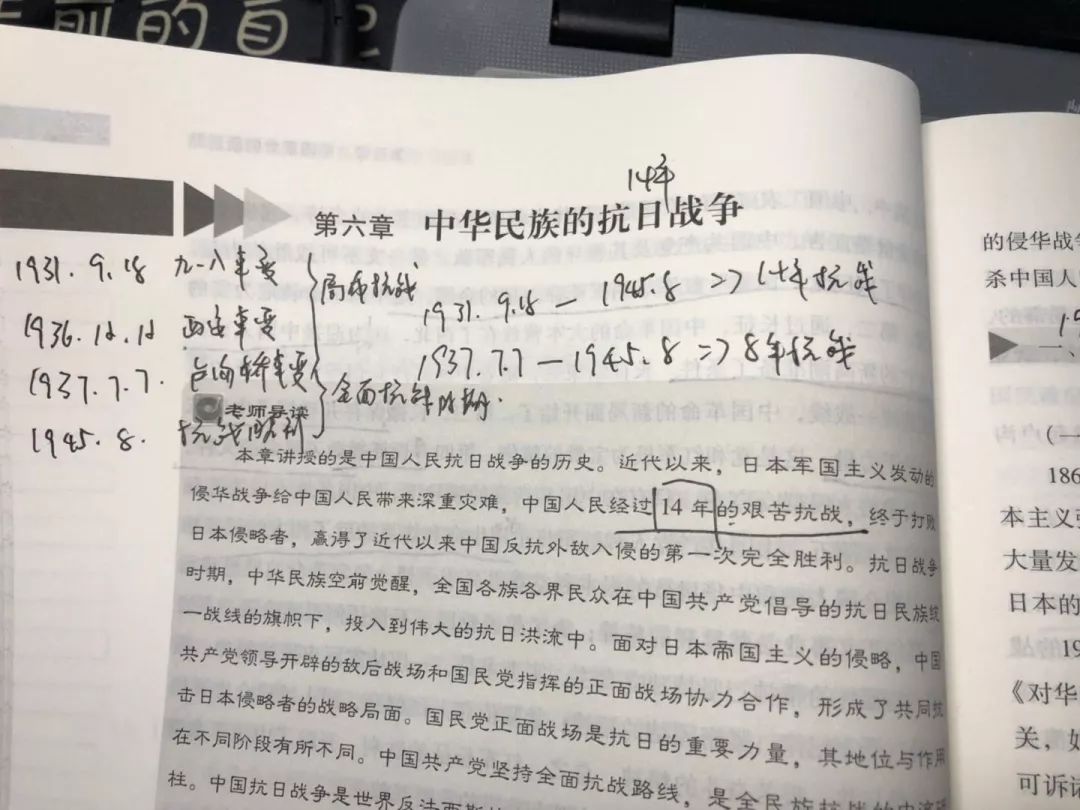 年前的自
14年
第六章 中华民族的抗日战争
1931.9.18 九一八事变
局部抗战
1931.9.18 — 1945.8 => 14年抗战
1936.12.12 西安事变
1937.7.7 — 1945.8 => 8年抗战
1937.7.7. 卢沟桥事变
全面抗战时期.
老师导读
1945.8. 抗战胜利
本章讲授的是中国人民抗日战争的历史。近代以来，日本军国主义发动的
侵华战争给中国人民带来深重灾难，中国人民经过14年的艰苦抗战，终于打败
日本侵略者，赢得了近代以来中国反抗外敌入侵的第一次完全胜利。抗日战争
时期，中华民族空前觉醒，全国各族各界民众在中国共产党倡导的抗日民族统
一战线的旗帜下，投入到伟大的抗日洪流中。面对日本帝国主义的侵略，中国
共产党领导开辟的敌后战场和国民党指挥的正面战场协力合作，形成了共同抗
击日本侵略者的战略局面。国民党正面战场是抗日的重要力量，其地位与作用
在不同阶段有所不同。中国共产党坚持全面抗战路线，是全民族抗战的中流砥
柱。中国抗日战争是世界反法西斯
的侵华战争
杀中国人
一、
(一
186
本主义强
大量发
日本的
19
《对华
关，如
可诉诸